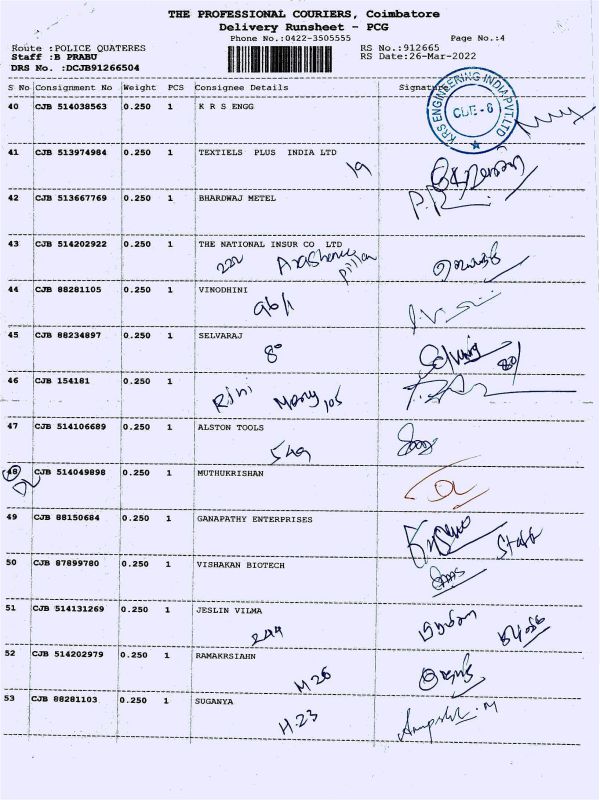 THE PROFESSIONAL COURIERS, Coimbatore
Delivery Runsheet - PCG
Phone No.:0422-3505555 Page No.:4
Route :POLICE QUATERES RS No.:912665
Staff :B PRABU RS Date:26-Mar-2022
DRS No. :DCJB91266504
S No Consignment No Weight PCS Consignee Details Signature
KRS ENGINEERING INDIA PVT LTD
CBE - 6
40 CJB 514038563 0.250 1 K R S ENGG
41 CJB 513974984 0.250 1 TEXTIELS PLUS INDIA LTD
19
42 CJB 513667769 0.250 1 BHARDWAJ METEL
43 CJB 514202922 0.250 1 THE NATIONAL INSUR CO LTD
222
44 CJB 88281105 0.250 1 VINODHINI
96/1
45 CJB 88234897 0.250 1 SELVARAJ
80 80/
46 CJB 154181 0.250 1
47 CJB 514106689 0.250 1 ALSTON TOOLS
549
48 CJB 514049898 0.250 1 MUTHUKRISHAN
49 CJB 88150684 0.250 1 GANAPATHY ENTERPRISES
Staff
50 CJB 87899780 0.250 1 VISHAKAN BIOTECH
51 CJB 514131269 0.250 1 JESLIN VILMA
244
52 CJB 514202979 0.250 1 RAMAKRSIAHN
M 26
53 CJB 88281103 0.250 1 SUGANYA
H.23